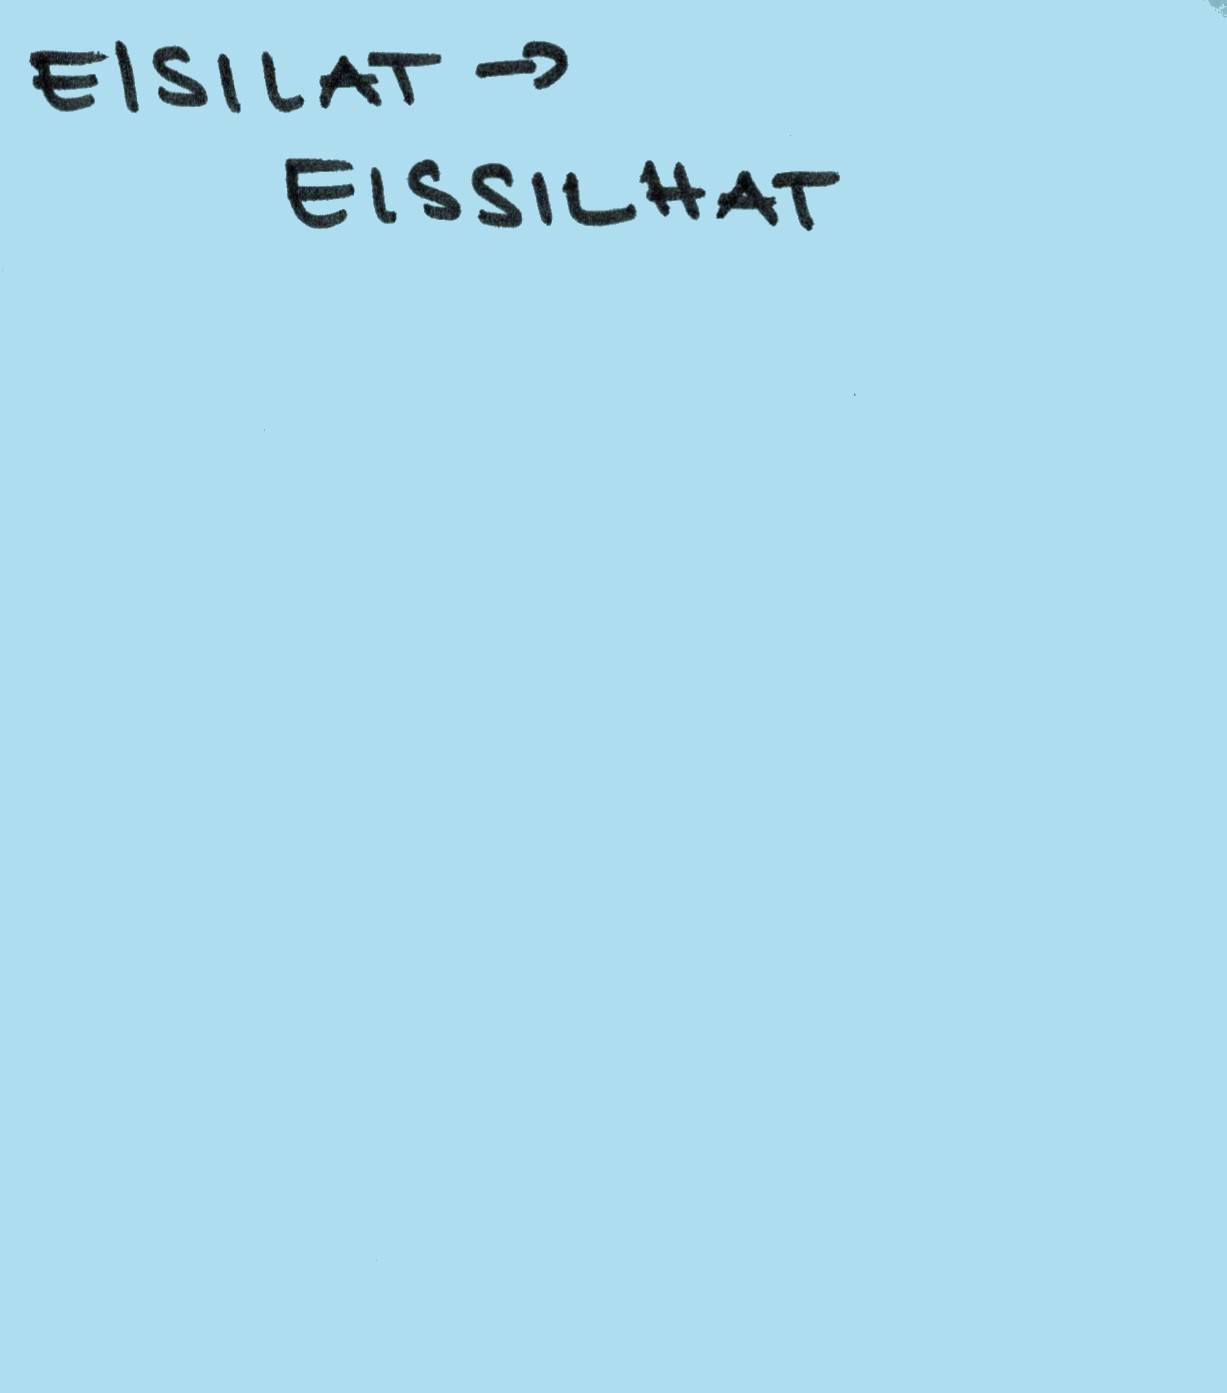 EISILAT →
EISSILHAT